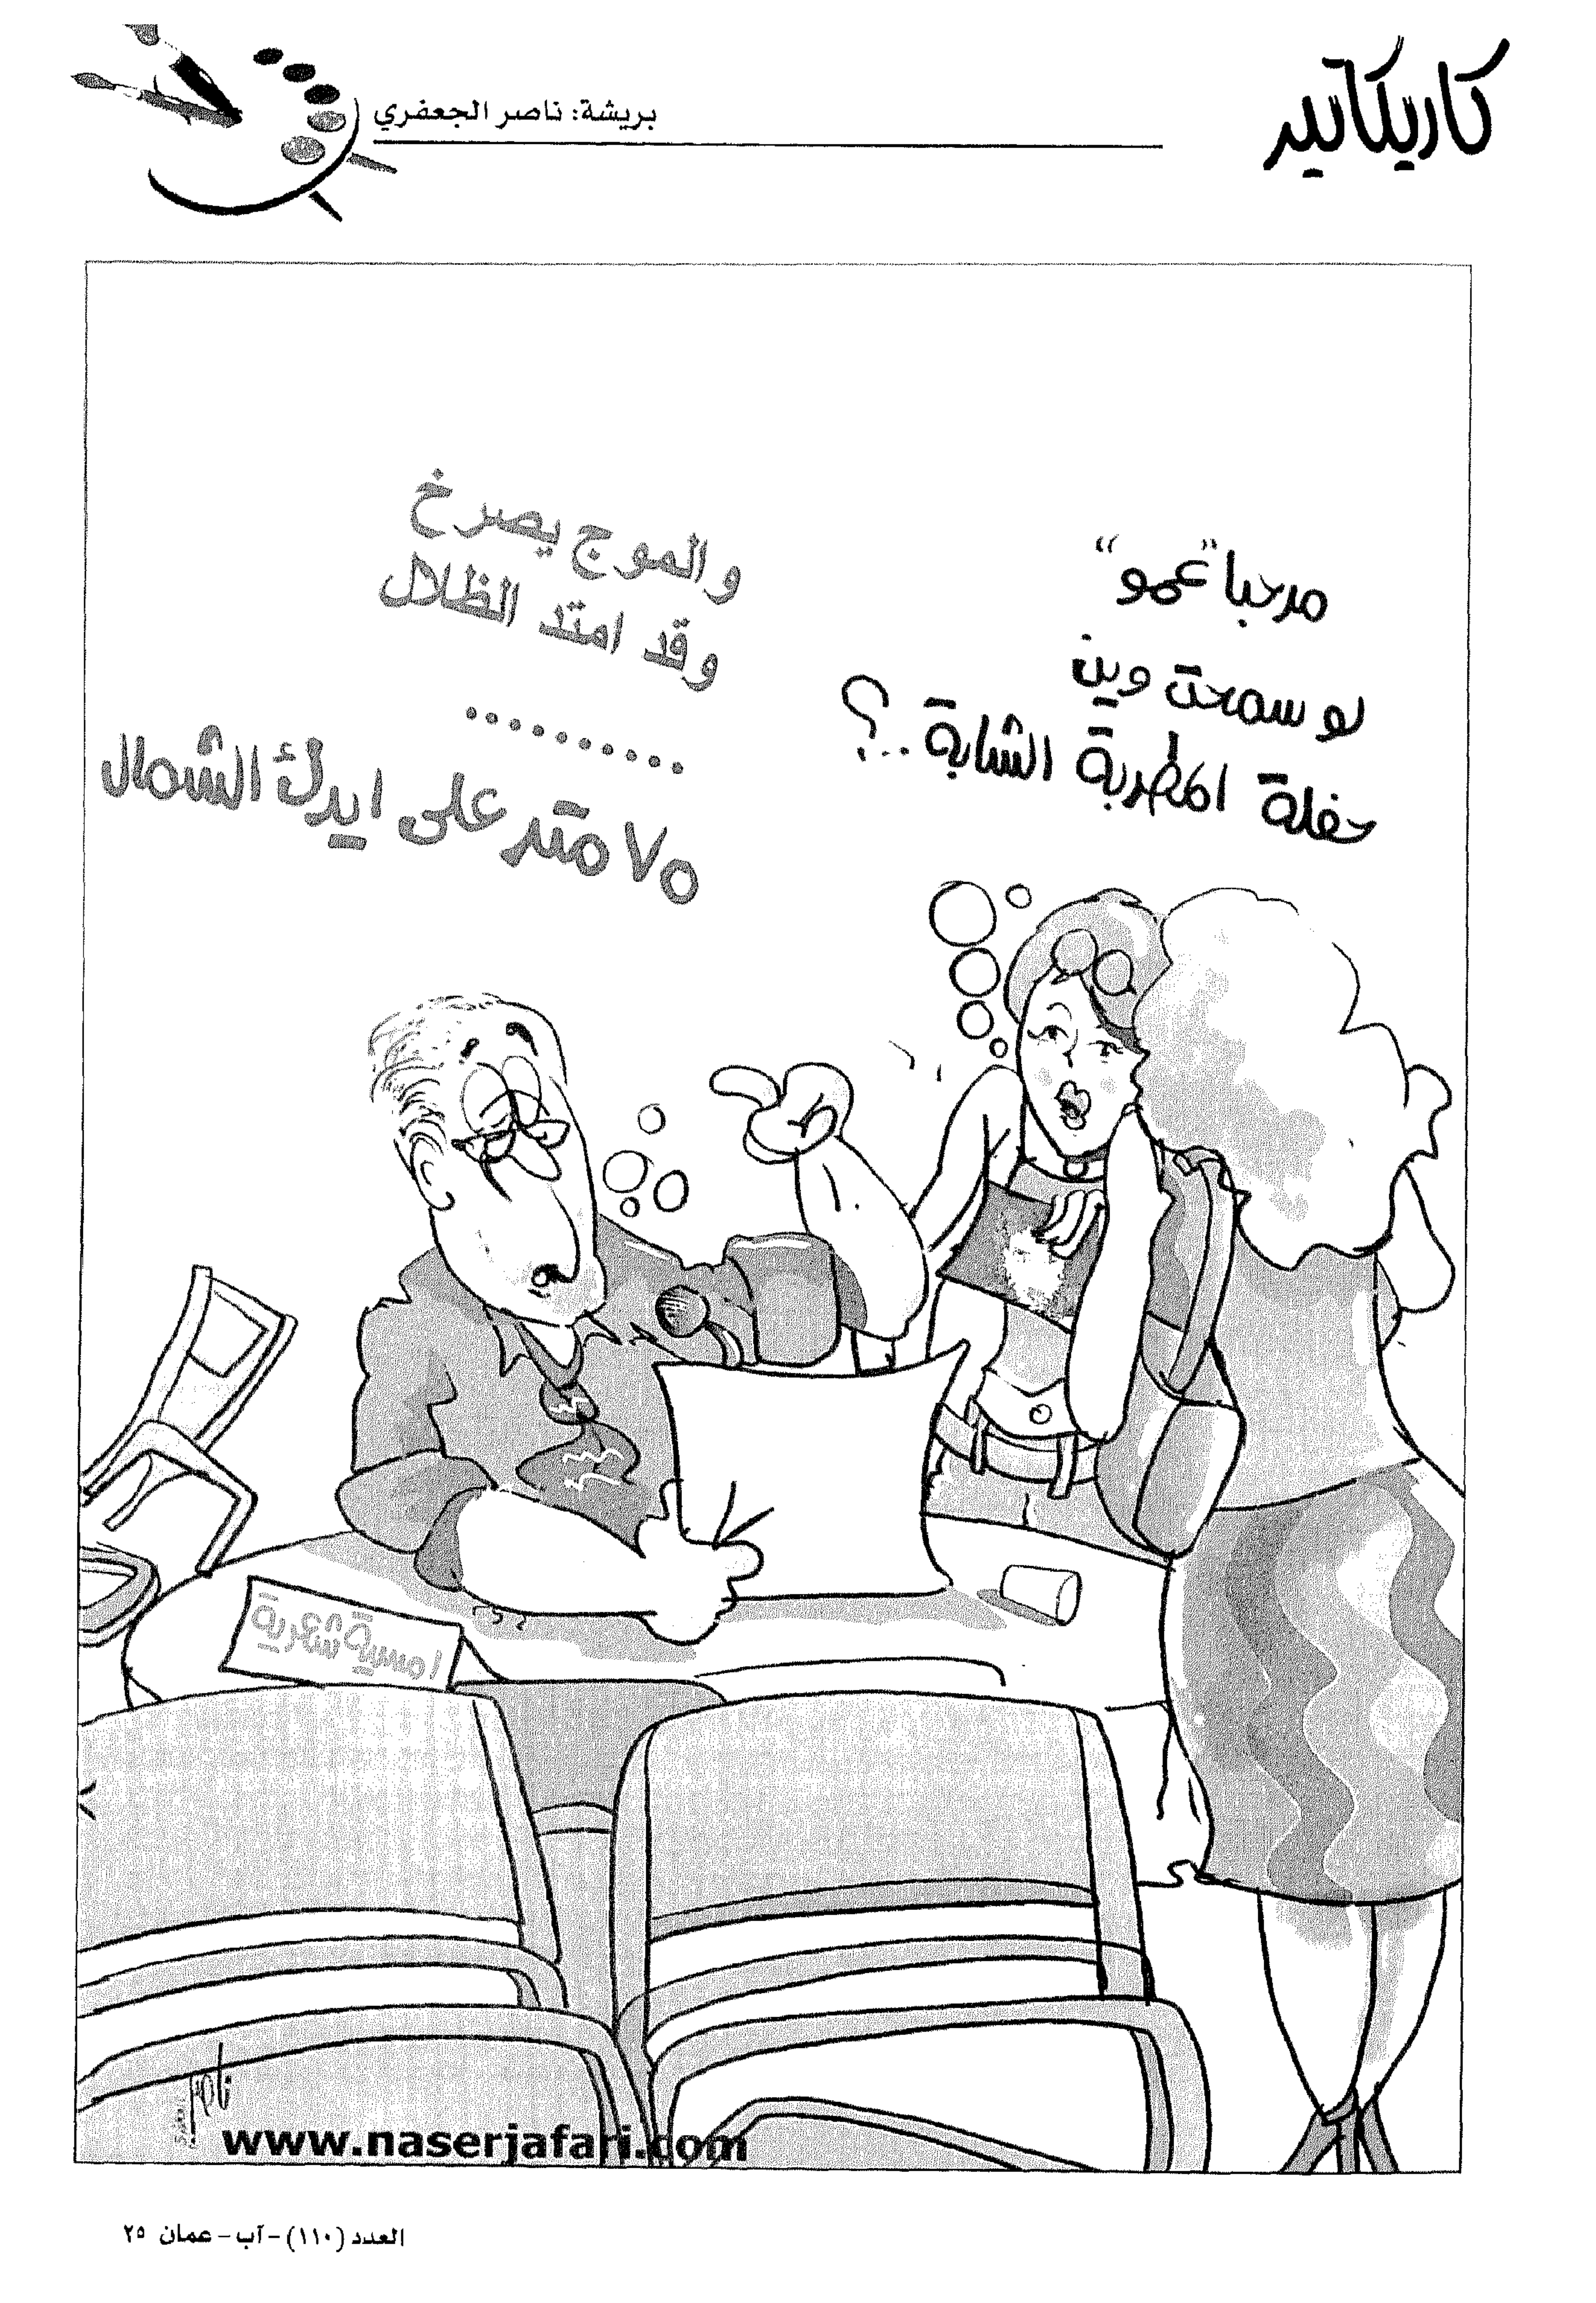 كاريكاتير
بريشة: ناصر الجعفري
مرحبا "عمو"
لو سمحت وين
حفلة المطربة الشابة..؟
والموج يصرخ
وقد امتد الظلال
..........
٧٥ متر على ايدك الشمال
امسية شعرية
ناصر
www.naserjafari.com
العدد (١١٠) - آب - عمان ٢٥